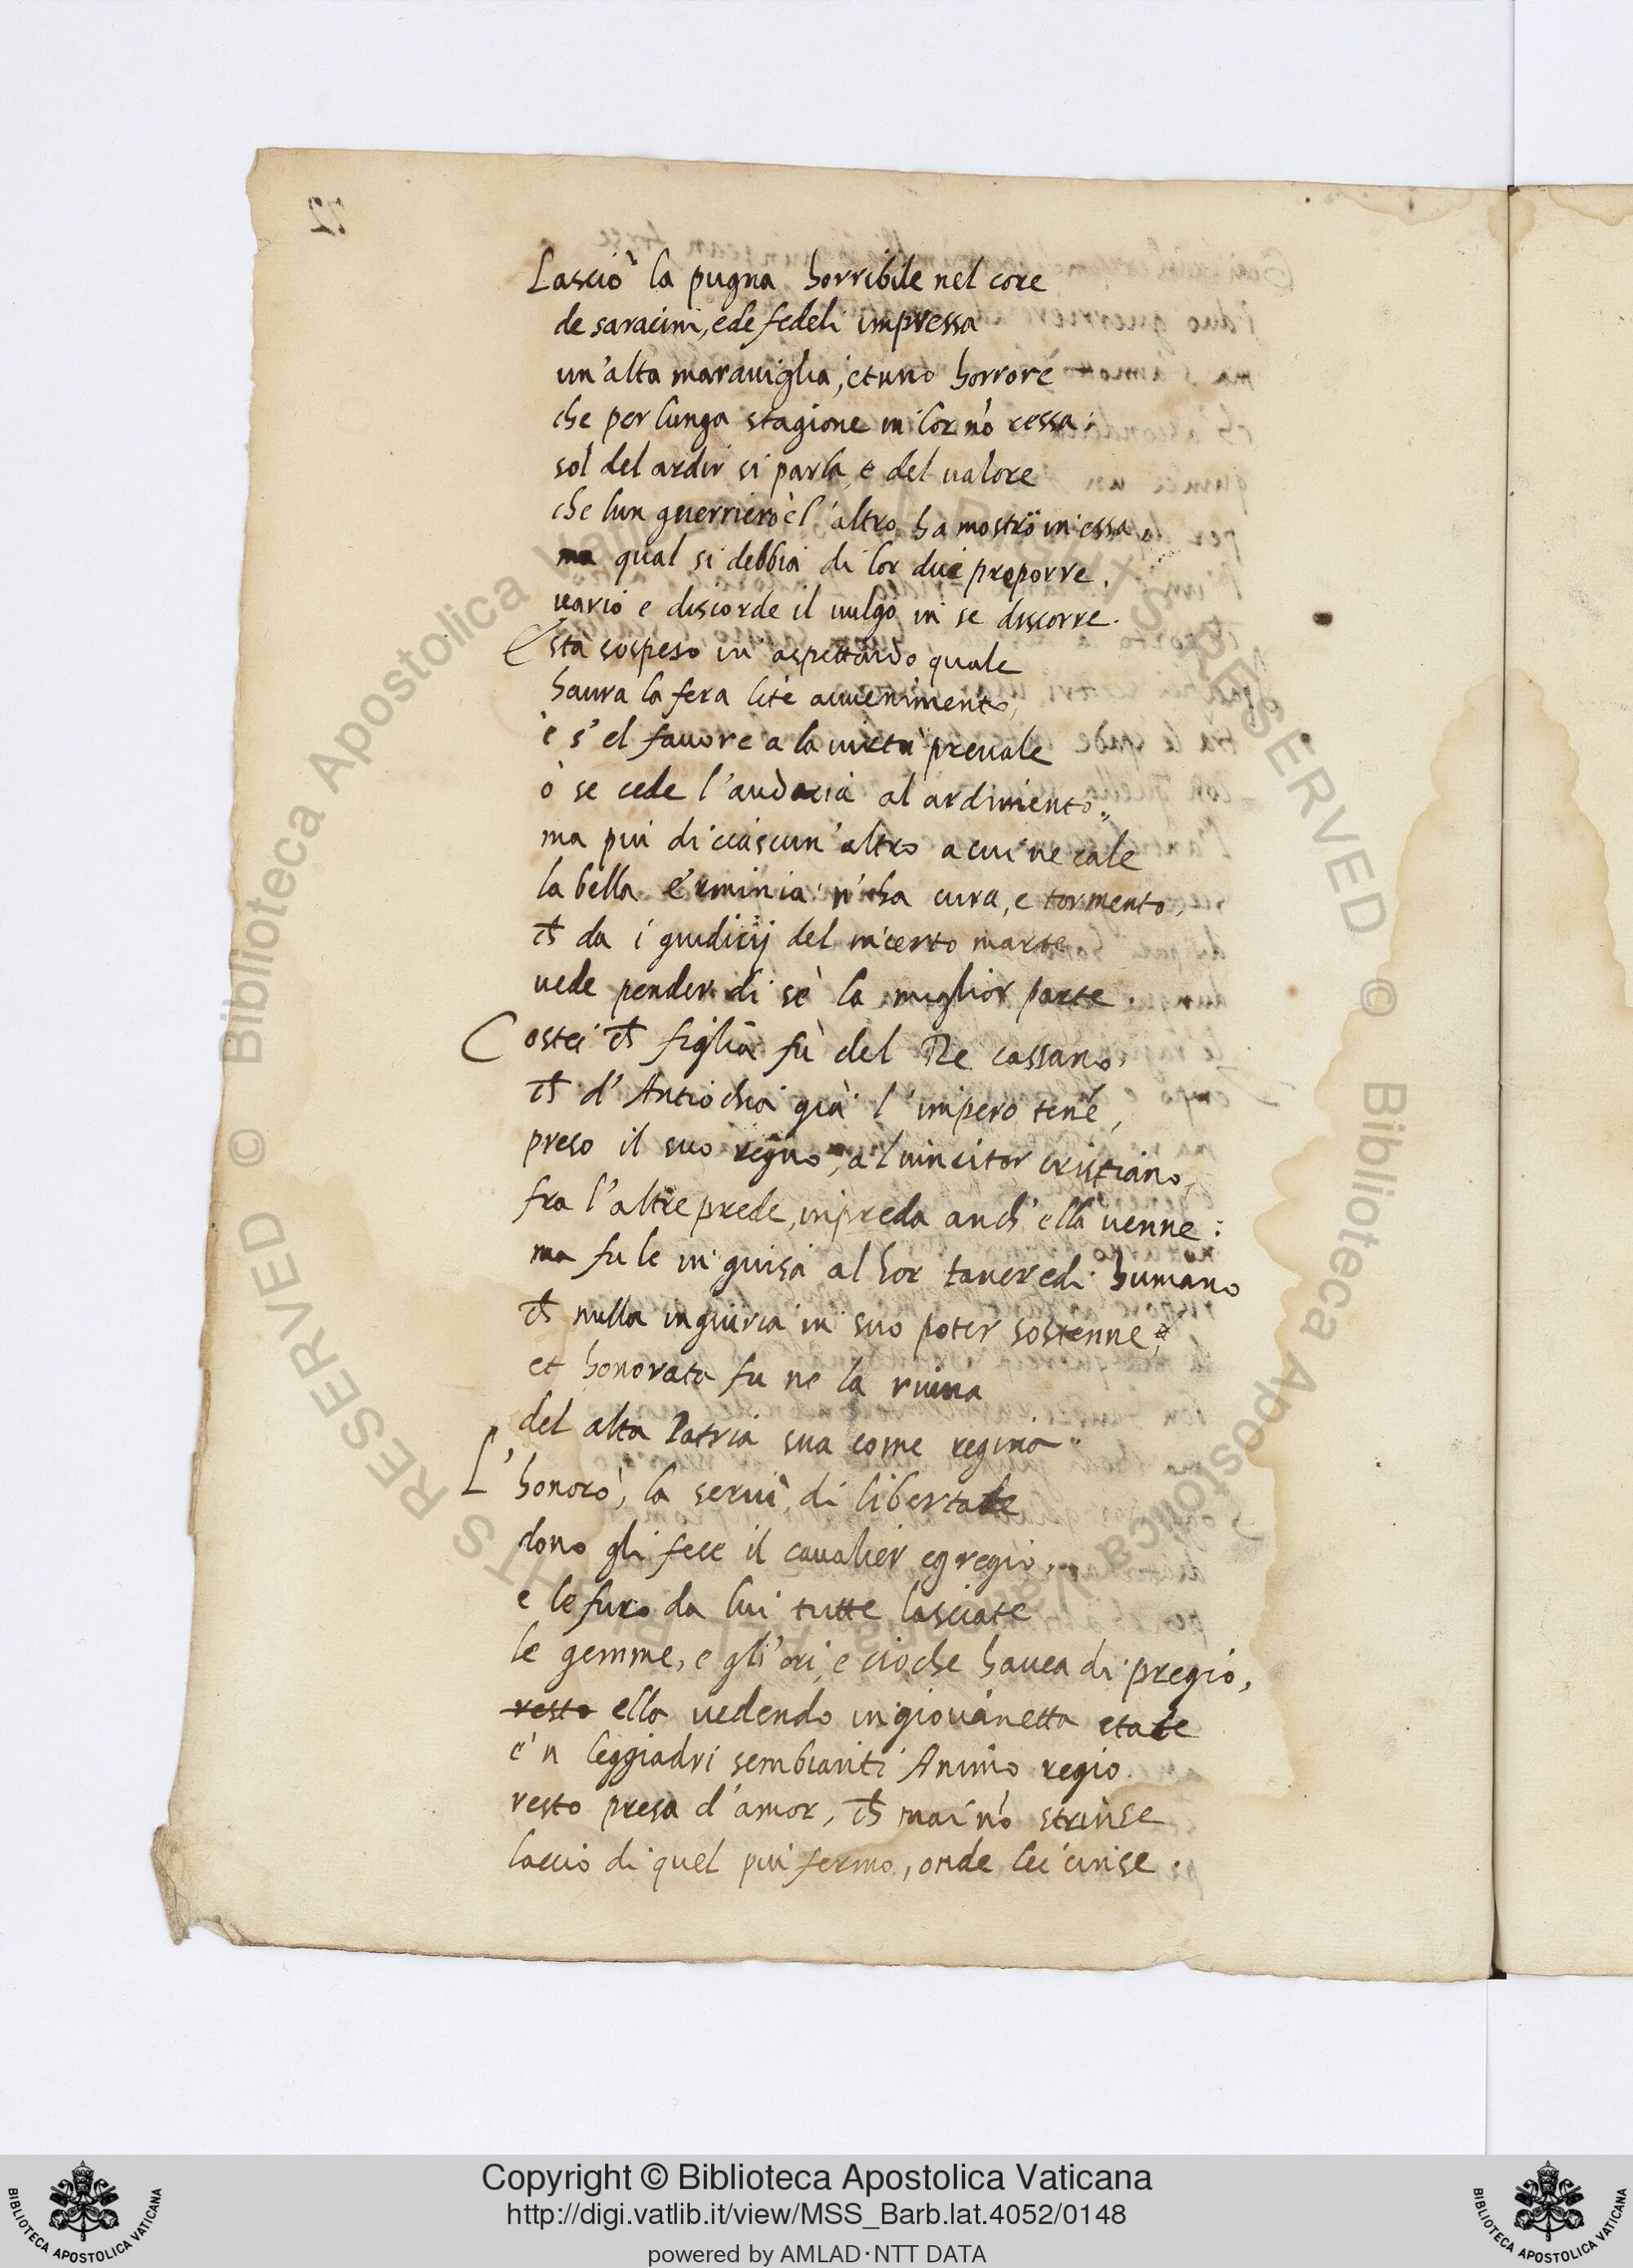 Lasciò la pugna horribile nel core
de saracini, e de fedeli impressa
un'alta marauiglia, et uno horrore
che per lunga stagione in lor nõ cessa:
sol del ardir si parla e del ualore
che lun guerriero è l'altro ha mostrò in essa,
ma qual si debbia di lor due preporre,
uario e discorde il uulgo in se discorre.
E sta sospeso in aspettando quale
haura la fera lite auuenimento,
è s'el fauore a la uirtu preuale
ò se cede l'audacia al ardimento,
ma piu di ciascun'altro a cui ne cale
la bella erminia n'ha cura, e tormento,
ch̃ da i giudicij del incerto marte
uede pender di sè la miglior parte.
Costei ch̃ figlia fù del Re cassano
ch̃ d'Antiochia già l'impero tenẽ,
preso il suo regno, al uincitor cristiano,
fra l'altre prede, in preda anch'ella uenne:
ma fu le in guisa al hor tancredi humano
ch̃ nulla ingiuria in suo poter sostenne,
et honorata fu ne la ruina
del alta Patria sua come regina.
L'honorò, la seruì, di libertate
dono gli fece il caualier egregio,
e le furo da lui tutte lasciate
le gemme, e gli'ori, e cio che hauea di pregio,
resto ella uedendo in giouanetta etate
e'n leggiadri sembianti Animo regio
resto presa d'amor, ch̃ mai nõ strinse
laccio di quel piu fermo, onde lei cinse.
Copyright © Biblioteca Apostolica Vaticana
http://digi.vatlib.it/view/MSS_Barb.lat.4052/0148
powered by AMLAD·NTT DATA